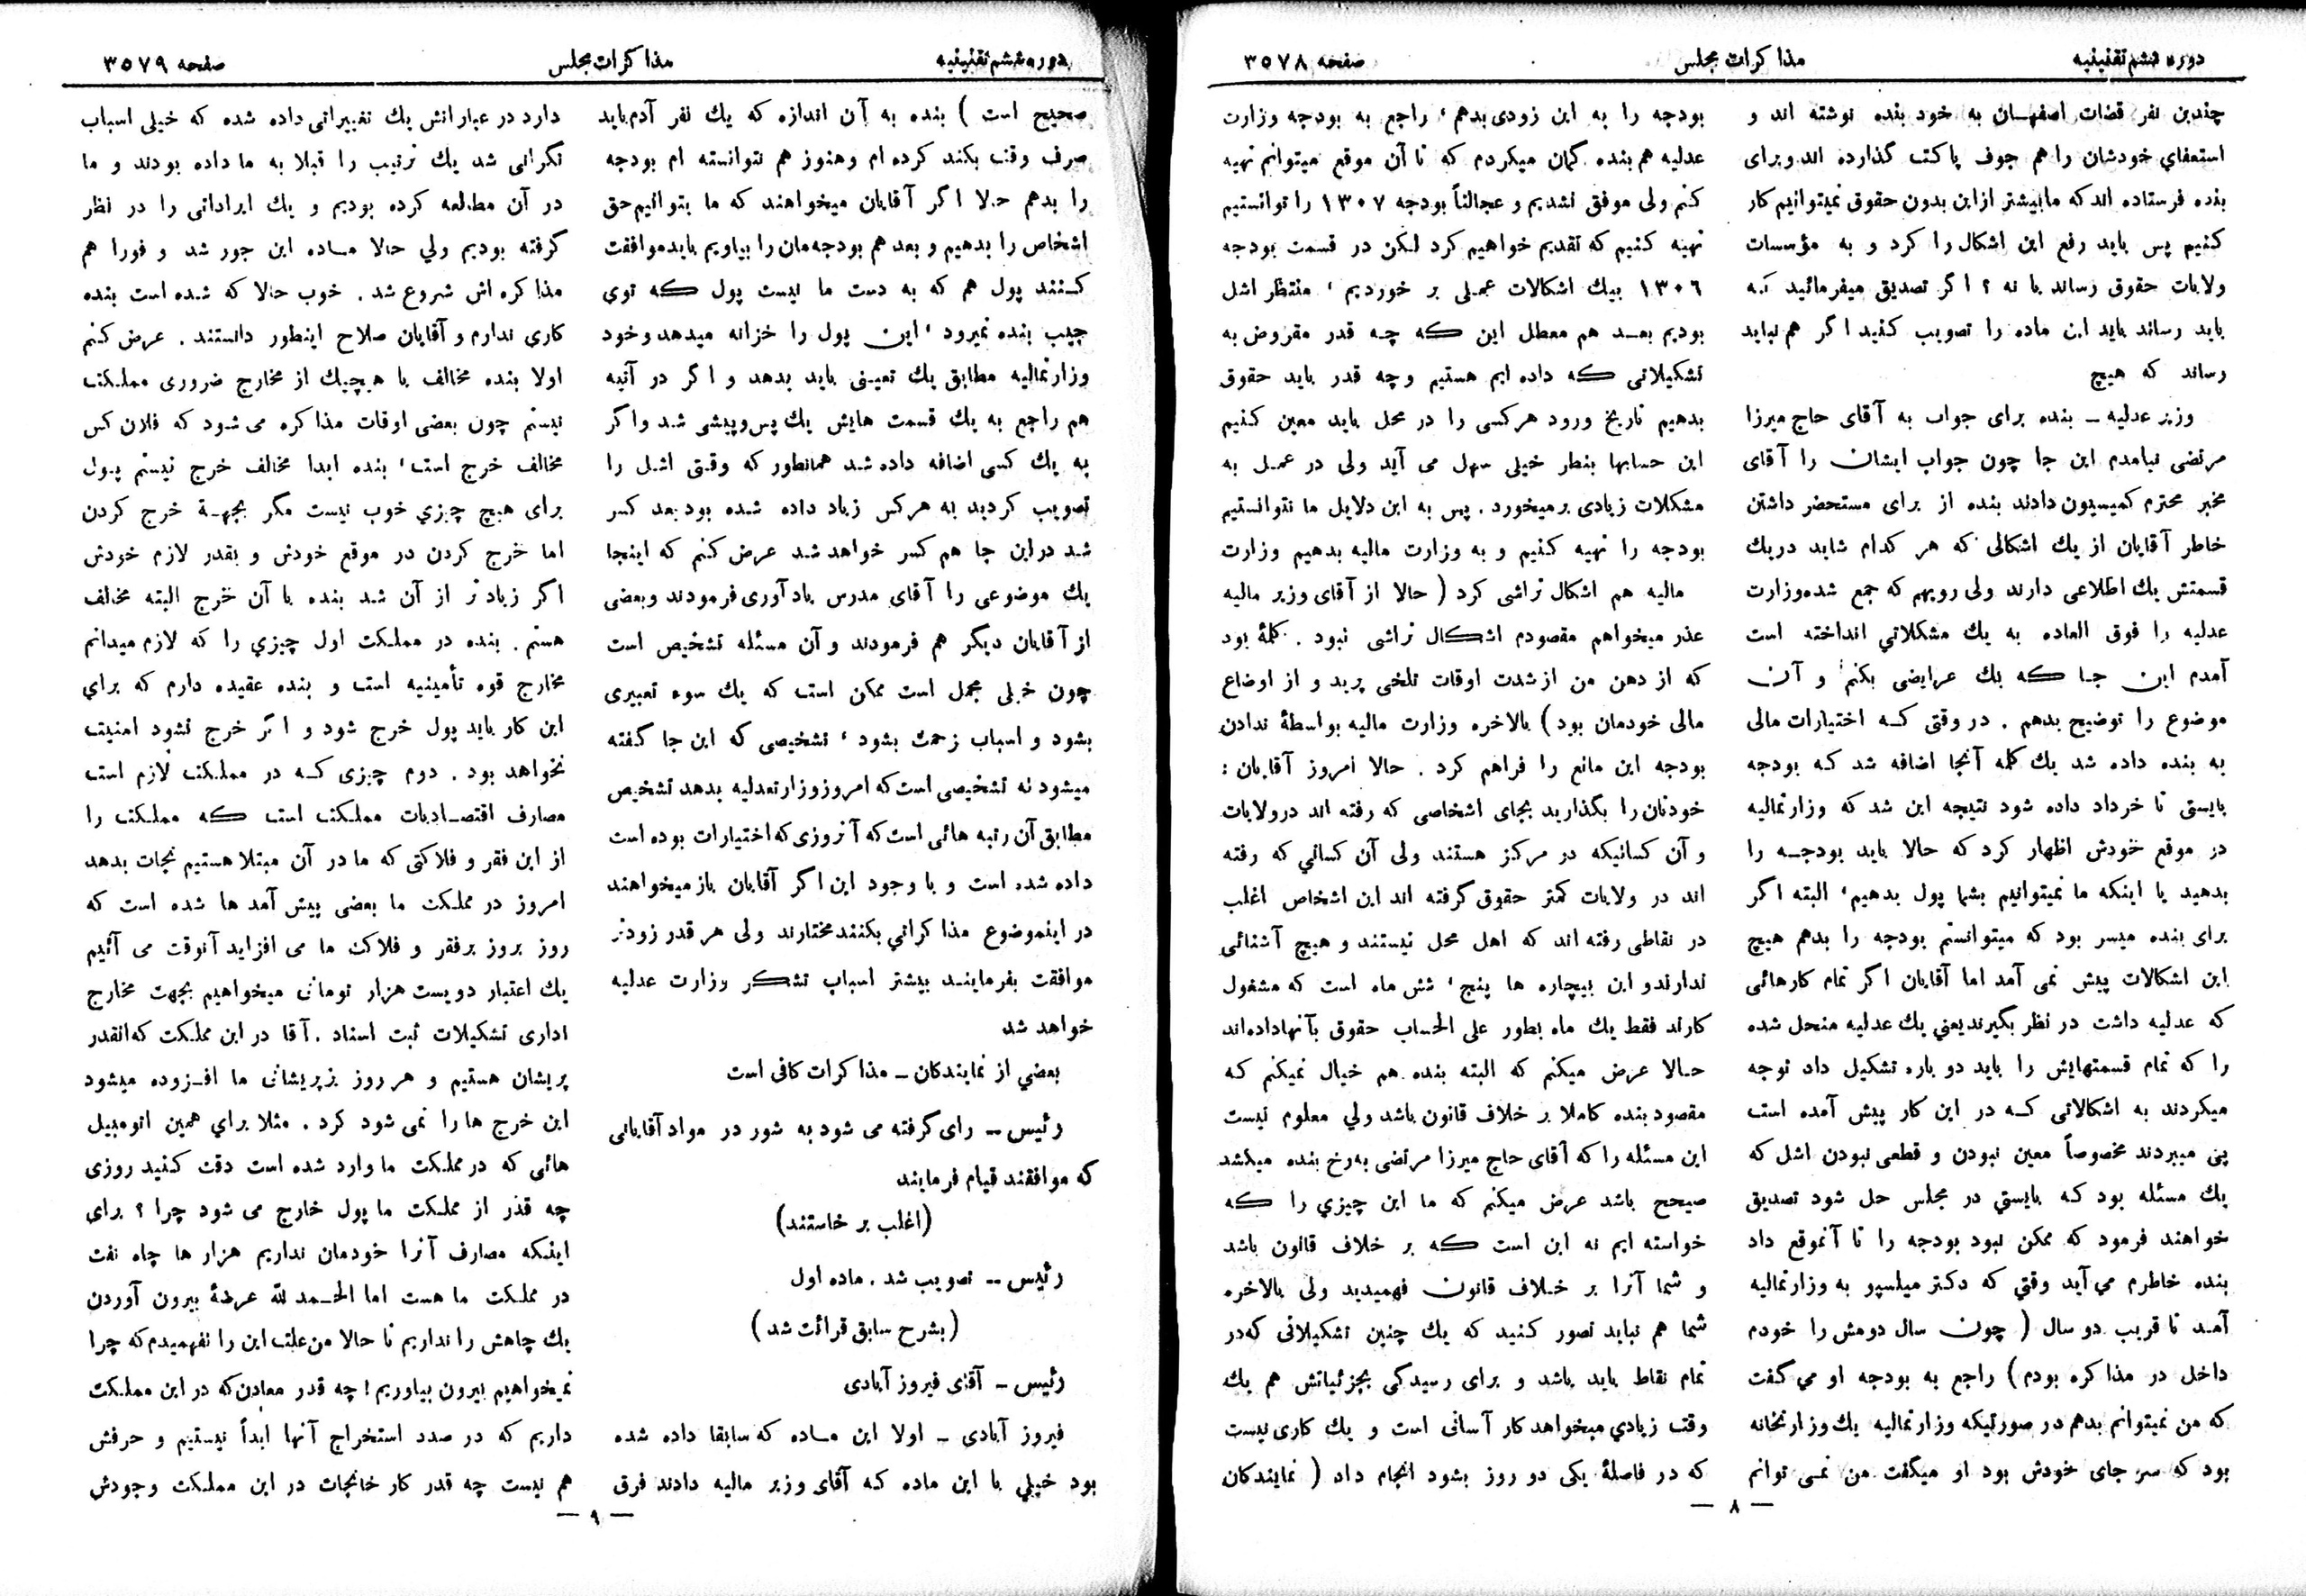 دوره ششم تقنینیه
مذاکرات مجلس
صفحه ۳۵۷۸
چندین نفر قضات اصفهان به خود بنده نوشته اند و
استعفای خودشان را هم جوف پاکت گذارده اند و برای
بنده فرستاده اند که ما بیشتر از این بدون حقوق نمیتوانیم کار
کنیم پس باید رفع این اشکال را کرد و به مؤسسات
ولایات حقوق رساند یا نه ؟ اگر تصدیق میفرمائید که
باید رساند باید این ماده را تصویب کنید اگر هم نباید
رساند که هیچ
وزیر عدلیه ـ بنده برای جواب به آقای حاج میرزا
مرتضی نیامدم این جا چون جواب ایشان را آقای
مخبر محترم کمیسیون دادند بنده از برای مستحضر داشتن
خاطر آقایان از یك اشکالی که هر کدام شاید در یك
قسمتش یك اطلاعی دارند ولی رویهم که جمع شده وزارت
عدلیه را فوق العاده به یك مشکلاتي انداخته است
آمدم این جا که یك عرایضی بکنم و آن
موضوع را توضیح بدهم . در وقتی که اختیارات مالی
به بنده داده شد یك کلمه آنجا اضافه شد که بودجه
بایستی تا خرداد داده شود نتیجه این شد که وزارتمالیه
در موقع خودش اظهار کرد که حالا باید بودجه را
بدهید یا اینکه ما نمیتوانیم بشما پول بدهیم، البته اگر
برای بنده میسر بود که میتوانستم بودجه را بدهم هیچ
این اشکالات پیش نمی آمد اما آقایان اگر تمام کارهائی
که عدلیه داشت در نظر بگیرند یعني یك عدلیه منحل شده
را که تمام قسمتهایش را باید دو باره تشکیل داد توجه
میکردند به اشکالاتی که در این کار پیش آمده است
پی میبردند مخصوصاً معین نبودن و قطعی نبودن اشل که
یك مسئله بود که بایستي در مجلس حل شود تصدیق
خواهند فرمود که ممکن نبود بودجه را تا آنموقع داد
بنده خاطرم می آید وقتي که دکتر میلسپو به وزارتمالیه
آمد تا قریب دو سال ( چون سال دومش را خودم
داخل در مذاکره بودم ) راجع به بودجه او می گفت
که من نمیتوانم بدهم در صورتیکه وزارتمالیه یك وزارتخانه
بود که سر جای خودش بود او میگفت من نمی توانم
بودجه را به این زودی بدهم، راجع به بودجه وزارت
عدلیه هم بنده گمان میکردم که تا آن موقع میتوانم تهیه
کنم ولی موفق نشدیم و عجالتاً بودجه ۱۳۰۷ را توانستیم
تهیه کنیم که تقدیم خواهیم کرد لکن در قسمت بودجه
۱۳۰۶ بیك اشکالات عملی بر خوردیم، منتظر اشل
بودیم بعد هم معطل این که چه قدر مقروض به
تشکیلاتی که داده ایم هستیم و چه قدر باید حقوق
بدهیم تاریخ ورود هر کسی را در محل باید معین کنیم
این حسابها بنظر خیلی سهل می آید ولی در عمل به
مشکلات زیادی بر میخورد . پس به این دلایل ما نتوانستیم
بودجه را تهیه کنیم و به وزارت مالیه بدهیم وزارت
مالیه هم اشکال تراشی کرد ( حالا از آقای وزیر مالیه
عذر میخواهم مقصودم اشکال تراشی نبود . کلمهٔ بود
که از دهن من از شدت اوقات تلخی پرید و از اوضاع
مالی خودمان بود ) بالاخره وزارت مالیه بواسطهٔ ندادن
بودجه این مانع را فراهم کرد . حالا امروز آقایان :
خودتان را بگذارید بجای اشخاصی که رفته اند در ولایات
و آن کسانیکه در مرکز هستند ولی آن کسانی که رفته
اند در ولایات کمتر حقوق گرفته اند این اشخاص اغلب
در نقاطی رفته اند که اهل محل نیستند و هیچ آشنائی
ندارند و این بیچاره ها پنج، شش ماه است که مشغول
کارند فقط یك ماه بطور علی الحساب حقوق بآنها داده اند
حالا عرض میکنم که البته بنده هم خیال نمیکنم که
مقصود بنده کاملا بر خلاف قانون باشد ولي معلوم نیست
این مسئله را که آقای حاج میرزا مرتضی به رخ بنده میکشد
صحیح باشد عرض میکنم که ما این چیزي را که
خواسته ایم نه این است که بر خلاف قانون باشد
و شما آنرا بر خلاف قانون فهمیدید ولی بالاخره
شما هم نباید تصور کنید که یك چنین تشکیلاتی که در
تمام نقاط باید باشد و برای رسیدگی بجزئیاتش هم یك
وقت زیادي میخواهد کار آسانی است و یك کاری نیست
که در فاصلهٔ یکی دو روز بشود انجام داد ( نمایندکان
— ۸ —
دوره ششم تقنینیه
مذاکرات مجلس
صفحه ۳۵۷۹
صحیح است ) بنده به آن اندازه که یك نفر آدم باید
صرف وقت بکند کرده ام و هنوز هم نتوانسته ام بودجه
را بدهم حالا اگر آقایان میخواهند که ما بتوانیم حق
اشخاص را بدهیم و بعد هم بودجه مان را بیاوریم باید موافقت
کنند پول هم که به دست ما نیست پول که توی
جیب بنده نمیرود، این پول را خزانه میدهد و خود
وزارتمالیه مطابق یك تعیینی باید بدهد و اگر در آتیه
هم راجع به یك قسمت هایش یك پس و پیشی شد و اگر
به یك کسی اضافه داده شد همانطور که وقتی اشل را
تصویب کردید به هر کس زیاد داده شده بود بعد کسر
شد در این جا هم کسر خواهد شد عرض کنم که اینجا
یك موضوعی را آقای مدرس یادآوری فرمودند و بعضی
از آقایان دیگر هم فرمودند و آن مسئله تشخیص است
چون خیلی مجمل است ممکن است که یك سوء تعبیری
بشود و اسباب زحمت بشود، تشخیصی که این جا گفته
میشود نه تشخیصی است که امروز وزارتعدلیه بدهد تشخیص
مطابق آن رتبه هائی است که آنروزی که اختیارات بوده است
داده شده است و با وجود این اگر آقایان باز میخواهند
در اینموضوع مذاکراتی بکنند مختارند ولی هر قدر زودتر
موافقت بفرمایند بیشتر اسباب تشکر وزارت عدلیه
خواهد شد
بعضي از نمایندکان ـ مذاکرات کافی است
رئیس ـ رای گرفته می شود به شور در مواد آقایانی
که موافقند قیام فرمایند
(اغلب بر خاستند)
رئیس ـ تصویب شد . ماده اول
(بشرح سابق قرائت شد )
رئیس ـ آقای فیروز آبادی
فیروز آبادی ـ اولا این ماده که سابقا داده شده
بود خیلي با این ماده که آقای وزیر مالیه دادند فرق
دارد در عباراتش یك تغییراتی داده شده که خیلی اسباب
نگرانی شد یك ترتیب را قبلا به ما داده بودند و ما
در آن مطالعه کرده بودیم و یك ایراداتی را در نظر
گرفته بودیم ولي حالا ماده این جور شد و فورا هم
مذاکره اش شروع شد . خوب حالا که شده است بنده
کاری ندارم و آقایان صلاح اینطور دانستند . عرض کنم
اولا بنده مخالف با هیچیك از مخارج ضروری مملکت
نیستم چون بعضی اوقات مذاکره می شود که فلان کس
مخالف خرج است، بنده ابدا مخالف خرج نیستم پول
برای هیچ چیزي خوب نیست مگر بجهة خرج کردن
اما خرج کردن در موقع خودش و بقدر لازم خودش
اگر زیادتر از آن شد بنده با آن خرج البته مخالف
هستم . بنده در مملکت اول چیزي را که لازم میدانم
مخارج قوه تأمینیه است و بنده عقیده دارم که برای
این کار باید پول خرج شود و اگر خرج نشود امنیت
نخواهد بود . دوم چیزی که در مملکت لازم است
مصارف اقتصادیات مملکت است که مملکت را
از این فقر و فلاکتی که ما در آن مبتلا هستیم نجات بدهد
امروز در مملکت ما بعضی پیش آمد ها شده است که
روز بروز بر فقر و فلاکت ما می افزاید آنوقت می آئیم
یك اعتبار دویست هزار تومانی میخواهیم بجهت مخارج
اداری تشکیلات ثبت اسناد . آقا در این مملکت که انقدر
پریشان هستیم و هر روز بر پریشانی ما افزوده میشود
این خرج ها را نمی شود کرد . مثلا برای همین اتومبیل
هائی که در مملکت ما وارد شده است دقت کنید روزی
چه قدر از مملکت ما پول خارج می شود چرا ؟ برای
اینکه مصارف آنرا خودمان نداریم هزار ها چاه نفت
در مملکت ما هست اما الحمد لله عرضهٔ بیرون آوردن
یك چاهش را نداریم تا حالا من علت این را نفهمیدم که چرا
نمیخواهیم بیرون بیاوریم ! چه قدر معادن که در این مملکت
داریم که در صدد استخراج آنها ابداً نیستیم و حرفش
هم نیست چه قدر کار خانجات در این مملکت وجودش
— ۹ —